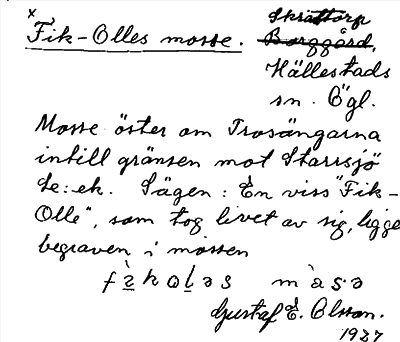 x
Fik-Olles mosse. Skrattorp
Borggård,
Hällestads
sn. Ögl.
Mosse öster om Trosängarna
intill gränsen mot Starrsjö
te:ek. Sägen: En viss "Fik-
Olle", som tog livet av sig, ligger
begraven i mossen
Gustaf E. Olsson.
1937